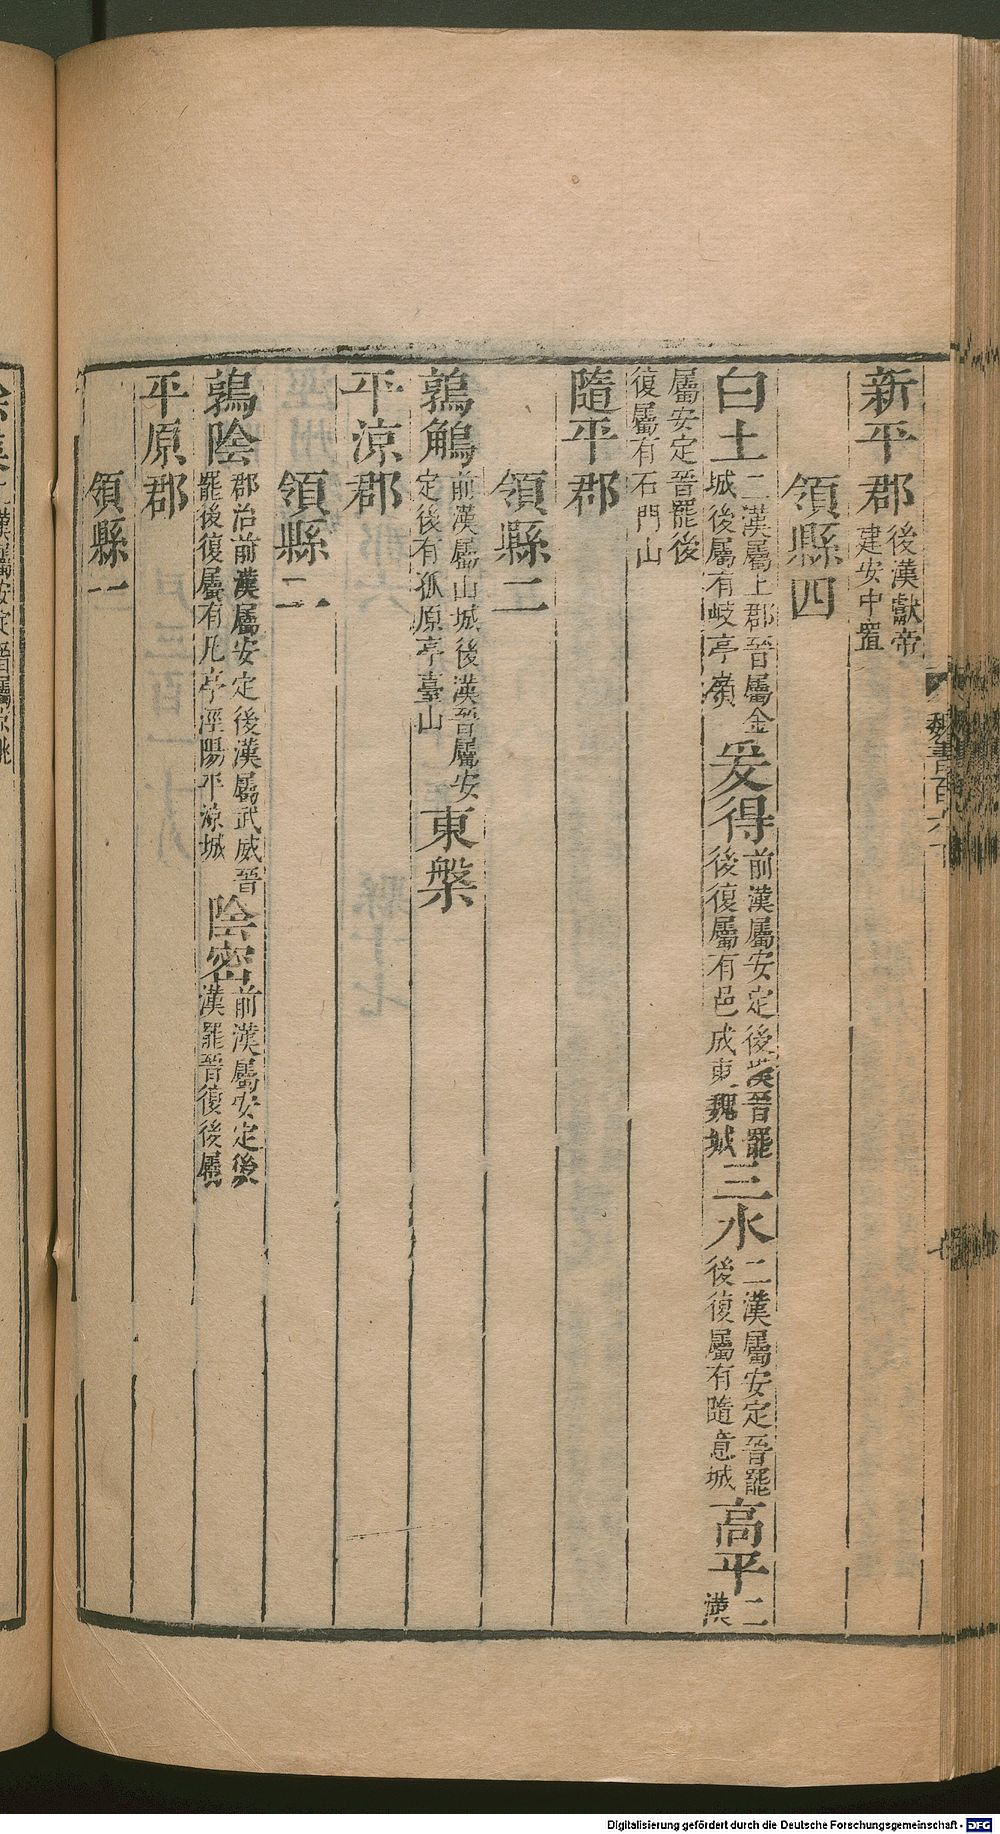 新平郡後漢獻帝建安中置
領縣四
白土二漢屬上郡晉屬金城後屬有岐亭嶺爰得前漢屬安定後漢晉罷後復屬有邑成東魏城三水二漢屬安定晉罷後復屬有隨意城高平二漢
屬安定晉罷後復屬有石門山
隨平郡
領縣二
鶉觚前漢屬山城後漢晉屬安定後有狐原亭臺山東槃
平涼郡
領縣二
鶉陰郡治前漢屬安定後漢屬武威晉罷後復屬有凡亭涇陽平涼城陰密前漢屬安定後漢罷晉復後屬
平原郡
領縣一
魏書百六下
漢屬安定晉屬
Digitalisierung gefördert durch die Deutsche Forschungsgemeinschaft - DFG